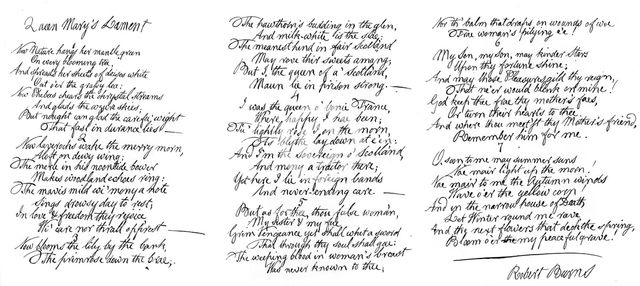 Queen Mary's Lament
Now Nature hangs her mantle green
On every blooming tree,
And spreads her sheets o' daisies white
Out o'er the grassy lea:
Now Phebus cheers the chrystal streams
And glads the azure skies;
But nought can glad the wearfu' wight
That fast in durance lies —
Now laverocks wake the merry morn,
Aloft on dewy wing;
The merle in his noontide bower
Makes woodland echoes ring:
The mavis mild wi' mony a note
Sings drowsy day to rest;
In love & freedom they rejoice
Wi' care nor thrall opprest —
3
Now blooms the lily by the bank,
The primrose down the brae;
The hawthorn's budding in the glen,
And milk-white is the slae;
The meanest hind in fair Scotland
May rove their sweets amang;
But I the queen of a' Scotland,
Maun lie in prison strang —
4
I was the queen o' bonie France,
Where happy I hae been;
Fu' lightly rose I on the morn,
As blythe lay down at e'en:
And I'm the sovereign o' Scotland,
And mony a traitor there;
Yet here I lie in foreign bands
And never ending care —
5
But as for thee, thou false woman,
My sister & my fae,
Grim vengeance yet shall whet a sword
That through thy soul shall gae:
The weeping blood in woman's breast
Was never known to thee;
Nor th' balm that draps on wounds of woe
Frae woman's pitying e'e!
6
My son, my son, may kinder stars
Upon thy fortune shine;
And may those pleasures gild thy reign,
That ne'er would blink on mine!
God keep thee frae thy mother's faes,
Or turn their hearts to thee:
And where thou meet'st thy Mother's friend,
Remember him for me.
7
O, soon to me may summer suns
Nae mair light up the morn!
Nae mair to me the Autumn winds
Wave o'er the yellow corn!
And in the narrow house of Death
Let Winter round me rave;
And the next flowers that deck the spring,
Bloom o'er my peaceful grave!
Robert Burns